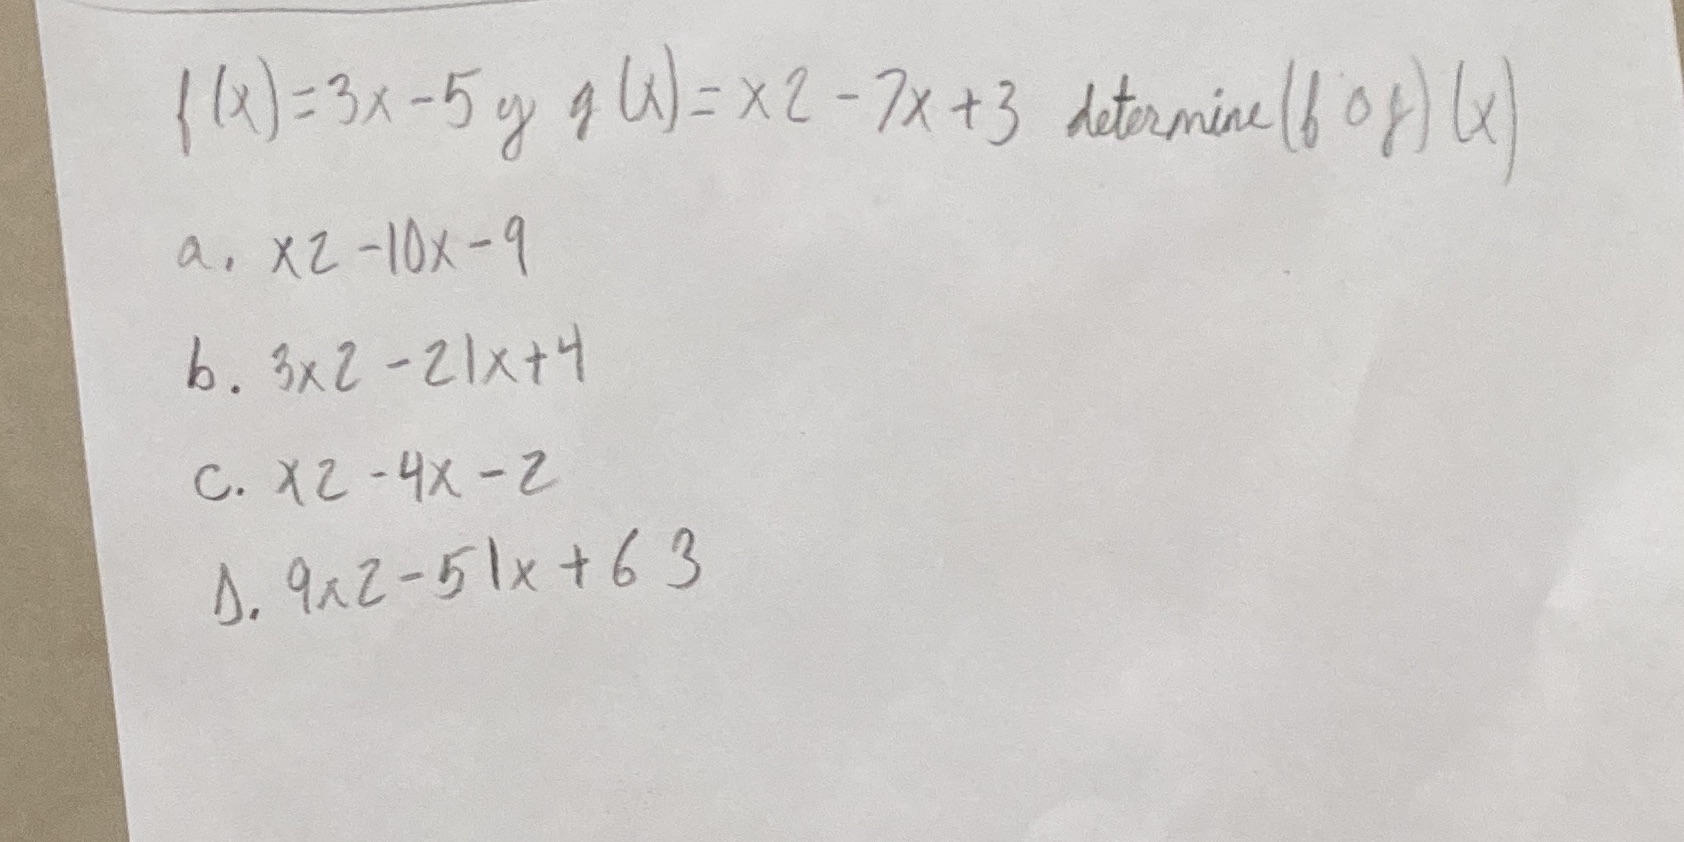 f(x)=3x-5 y g(x)=x2-7x+3 determine (f o g)(x)
a. x2-10x-9
b. 3x2-21x+4
c. x2-4x-2
D. 9x2-51x+63